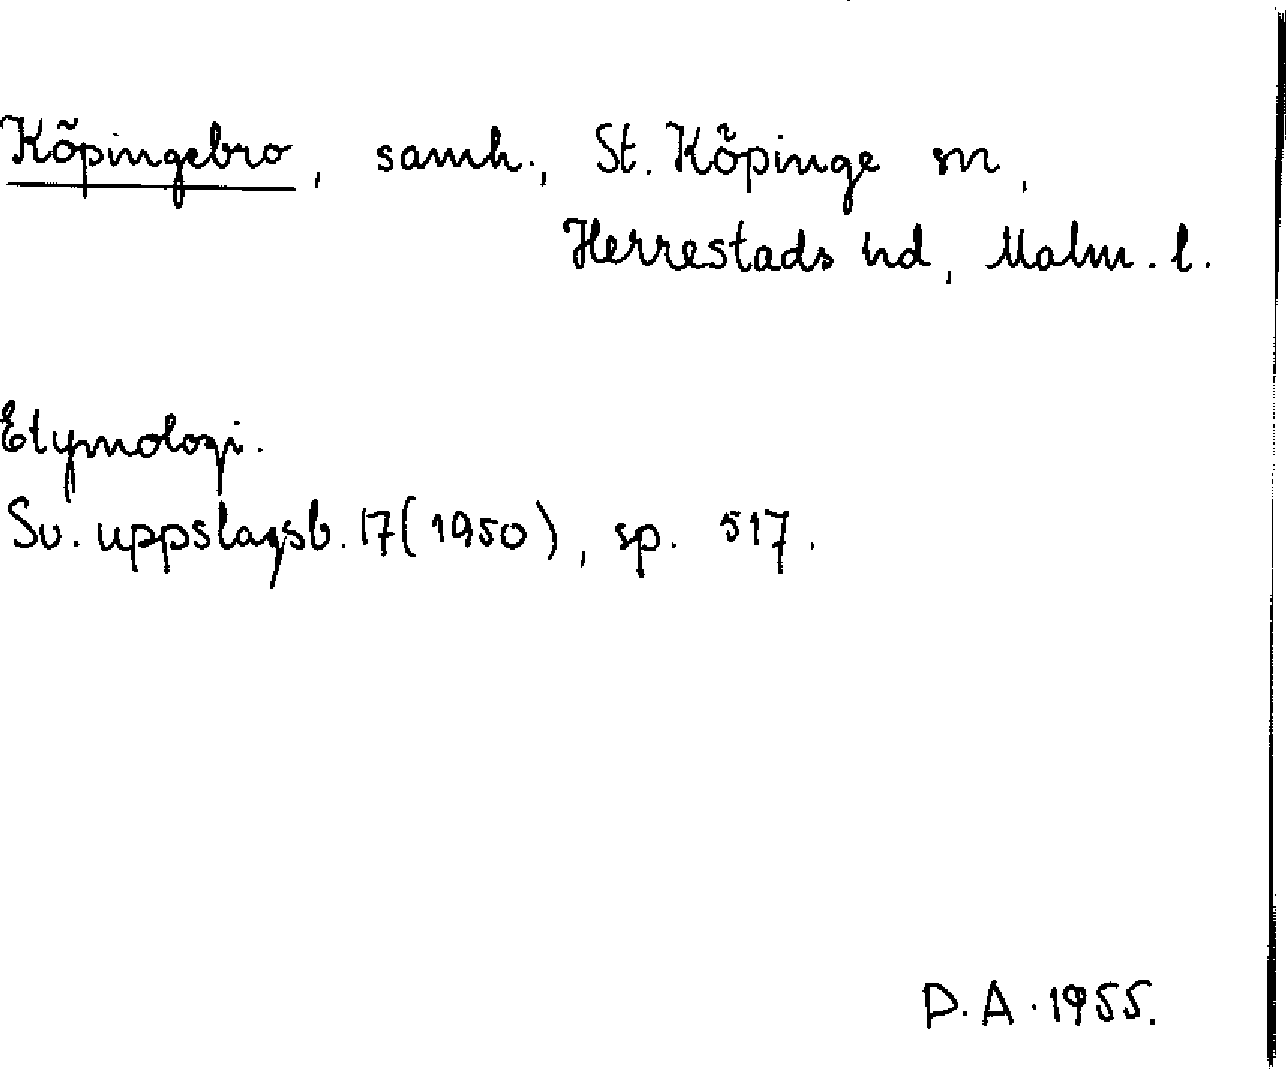 Köpingebro, samh., St. Köpinge sn,
Herrestads hd, Malm. l.
Etymologi.
Sv. uppslagsb. 17(1950), sp. 517.
D.A. 1955.